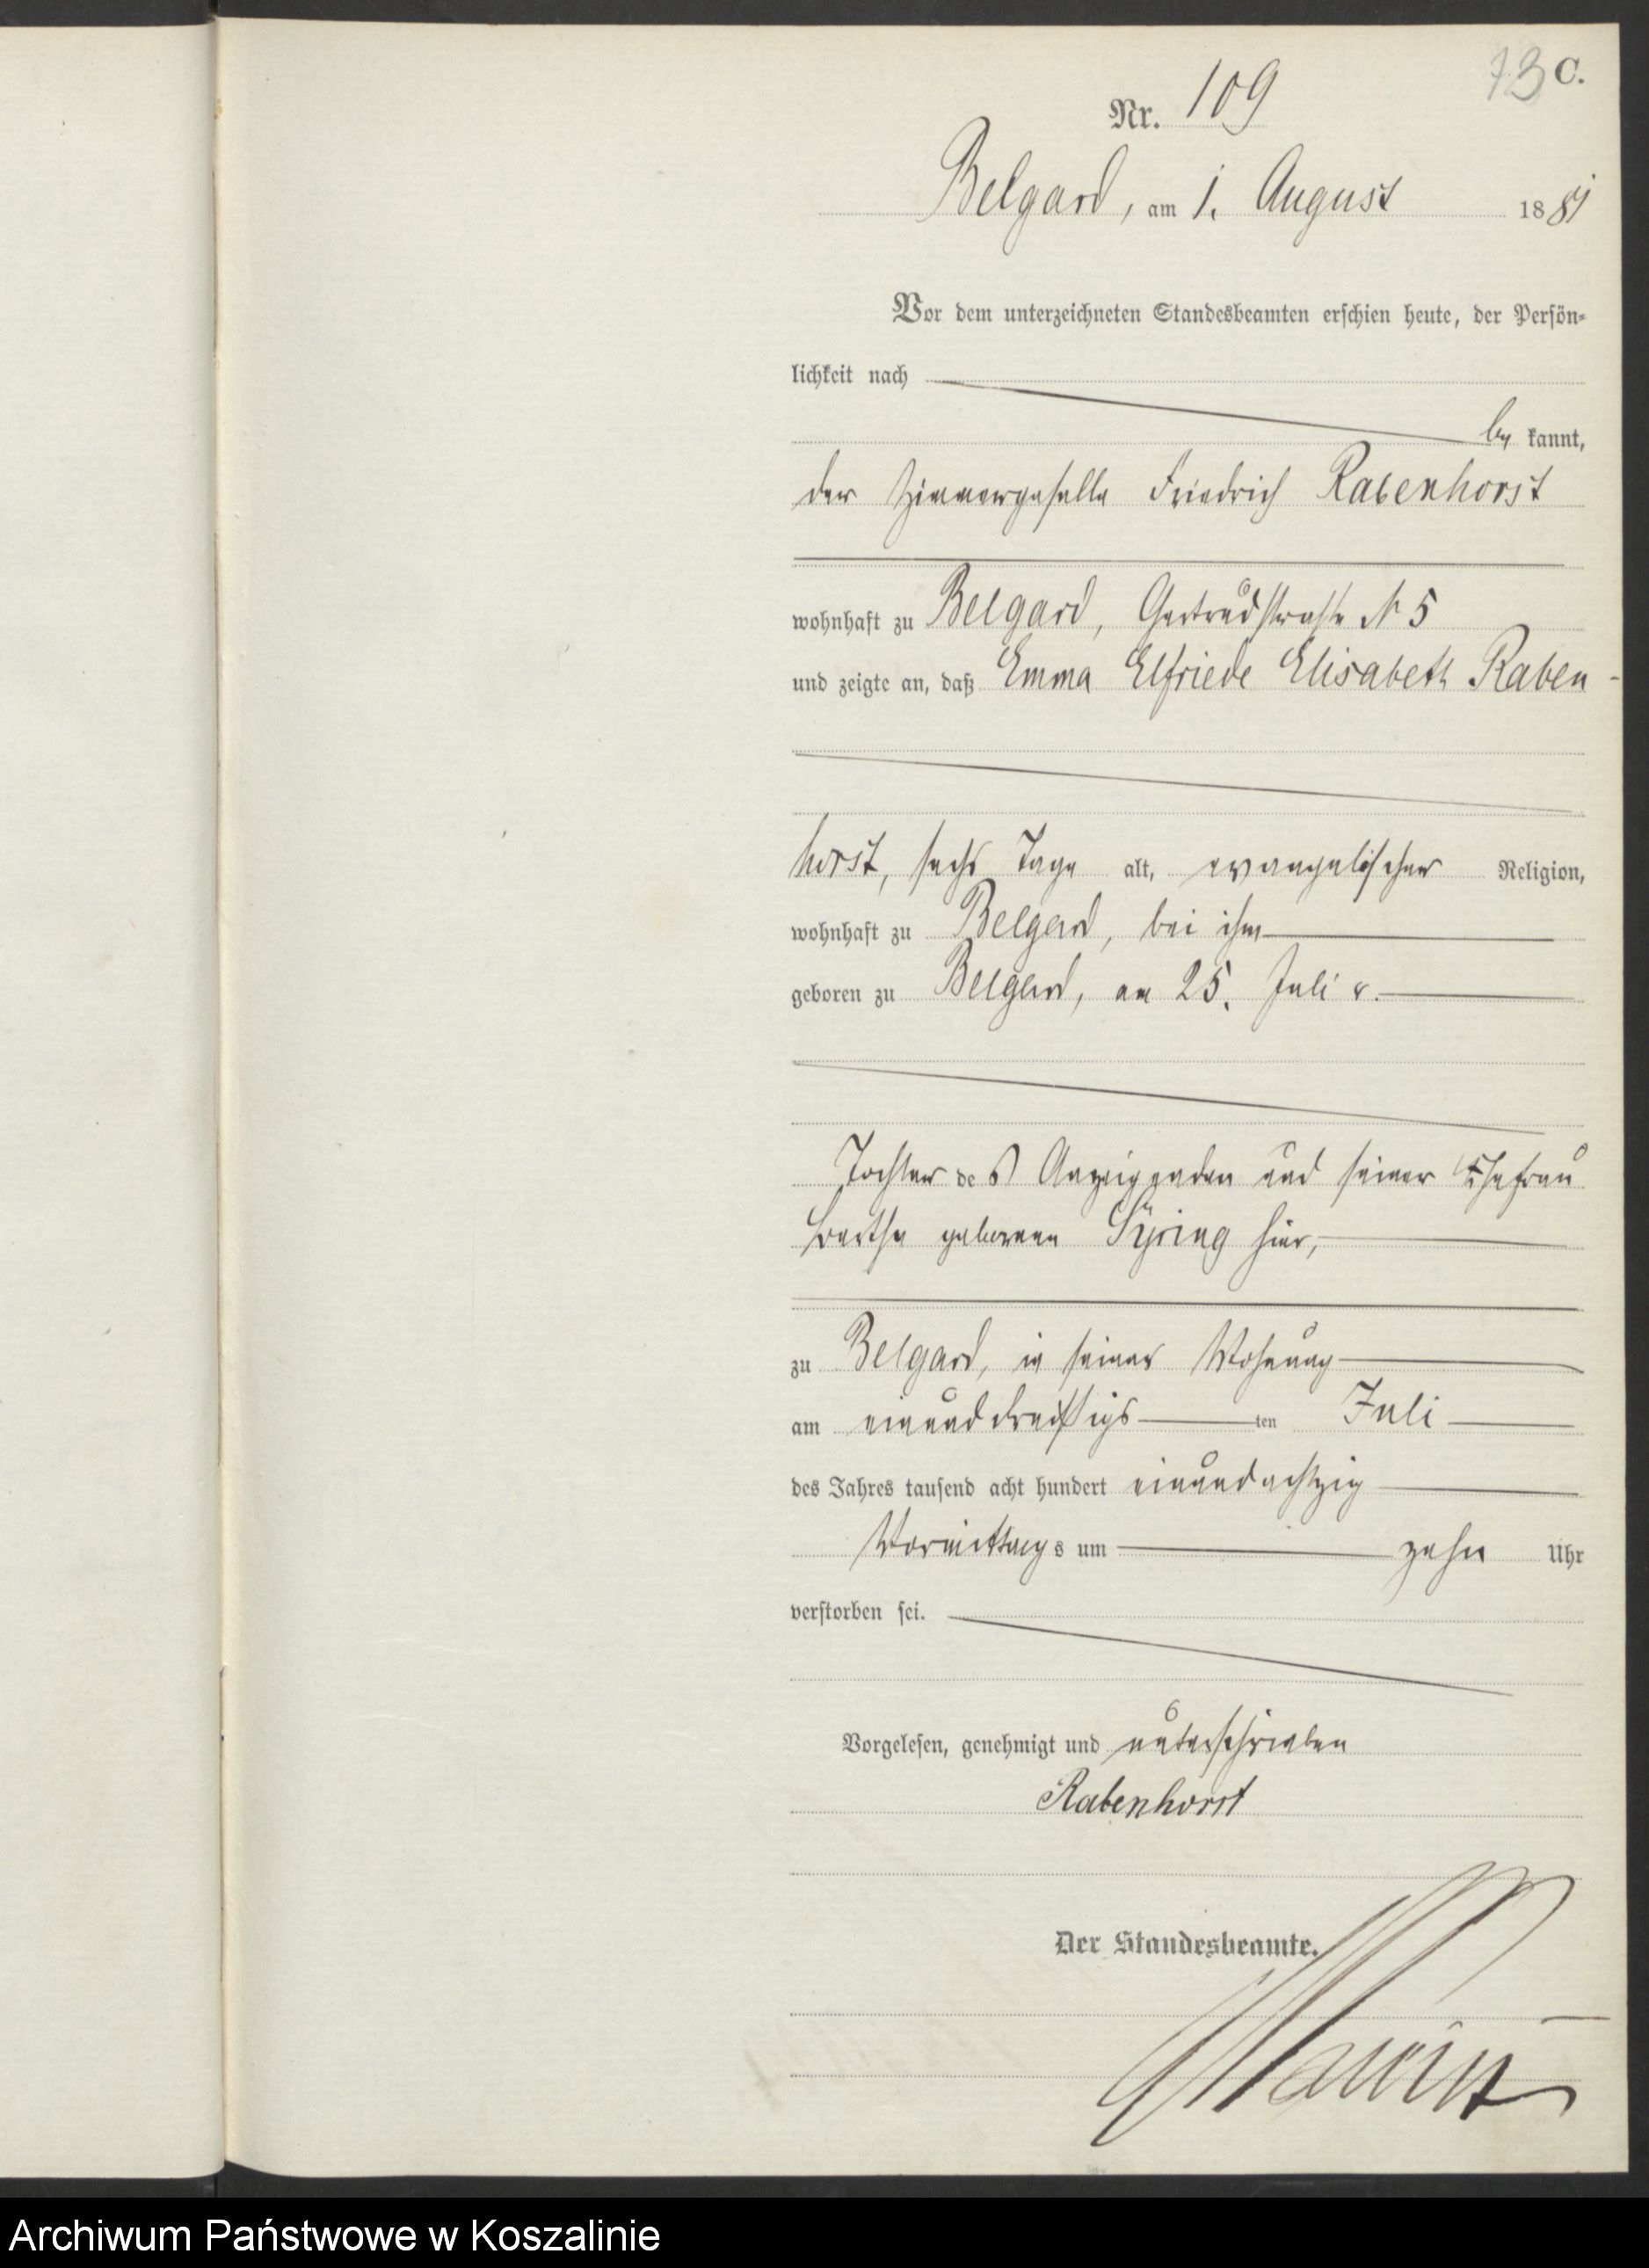 73 C.
Nr. 109
Belgard, am 1. August 1881
Vor dem unterzeichneten Standesbeamten erschien heute, der Persön-
lichkeit nach
be kannt,
der Zimmergeselle Friedrich Rabenhorst
wohnhaft zu Belgard, Gertrudstraße N 5
und zeigte an, daß Emma Elfriede Elisabeth Raben-
horst, sechs Tage alt, evangelischer Religion,
wohnhaft zu Belgard, bei ihm
geboren zu Belgard, am 25. Juli c.
Tochter des Anzeigenden und seiner Ehefrau
Berthe geborenen Syring hier,
zu Belgard, in seiner Wohnung
am einunddreißigsten Juli
des Jahres tausend acht hundert einundachtzig
Vormittags um zehn Uhr
verstorben sei.
Vorgelesen, genehmigt und unterschrieben
Rabenhorst
Der Standesbeamte.
Archiwum Państwowe w Koszalinie